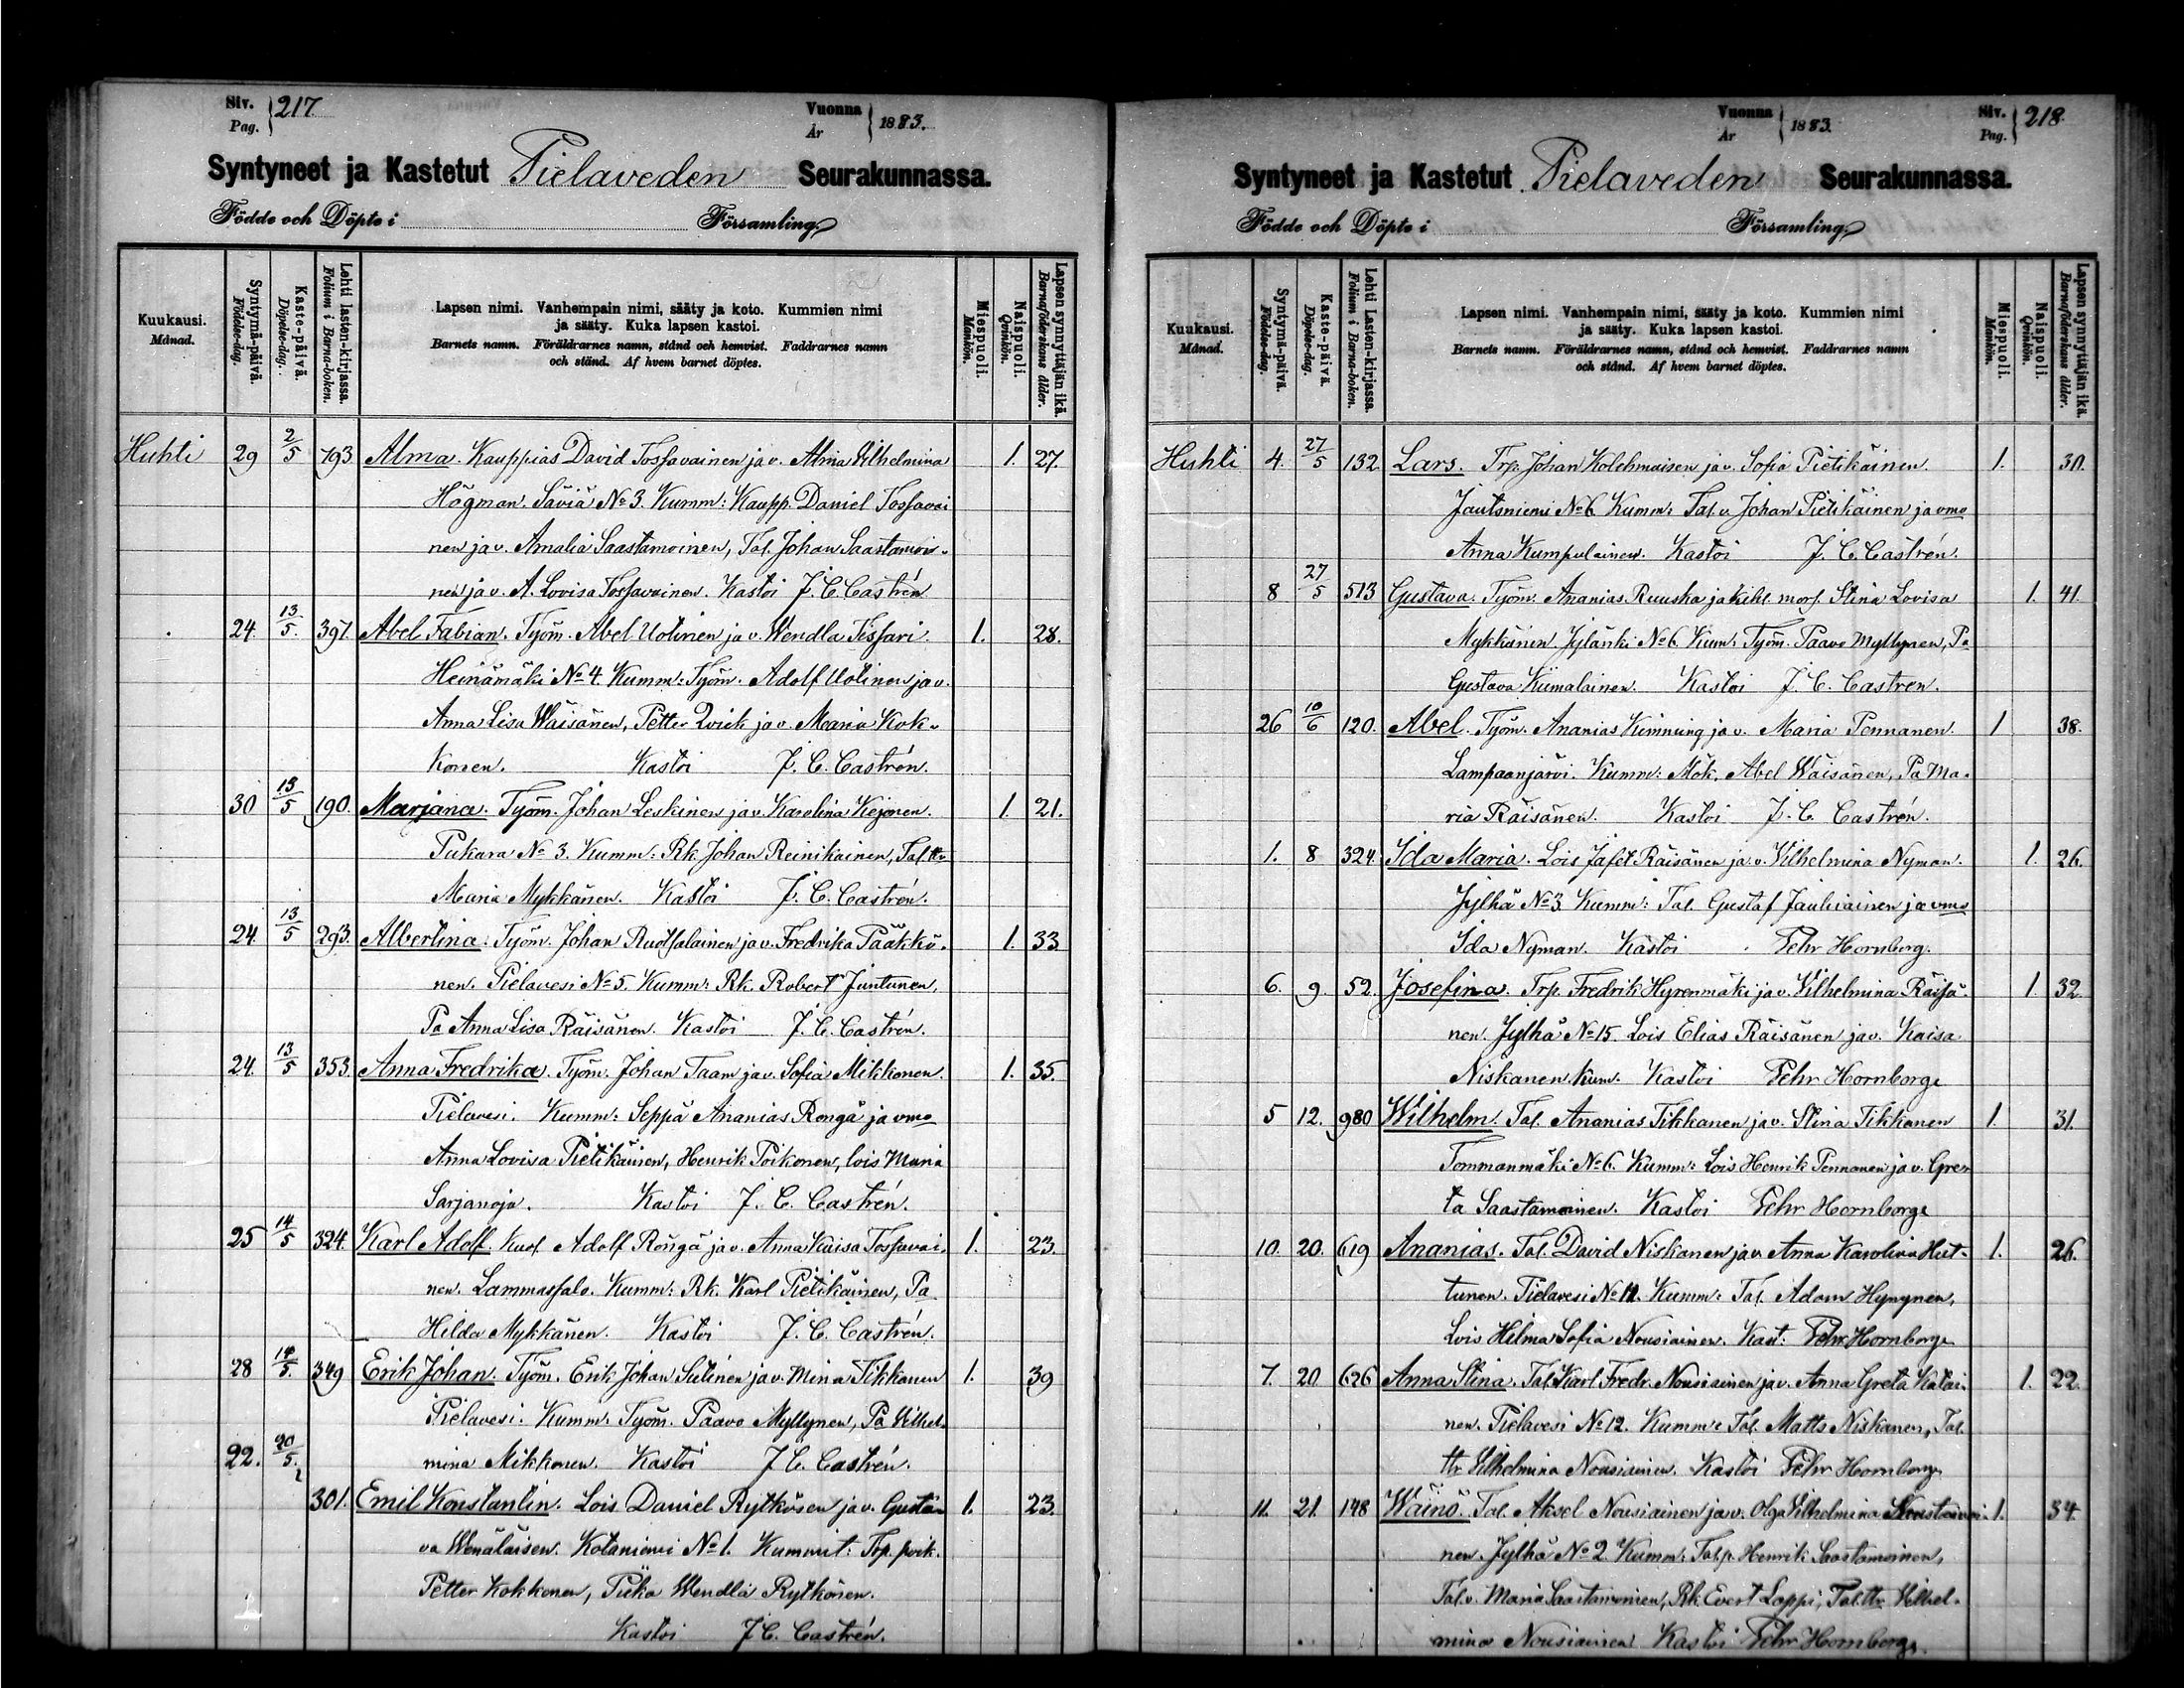 Siv. Pag. 217
Vuonna År 1883.
Syntyneet ja Kastetut Pielaveden Seurakunnassa.
Födde och Döpte i Församling.
Kuukausi. Månad.
Syntymä-päivä. Födelse-dag.
Kaste-päivä. Döpelse-dag.
Lehti lasten-kirjassa. Folium i Barna-boken.
Lapsen nimi. Vanhempain nimi, sääty ja koto. Kummien nimi
ja sääty. Kuka lapsen kastoi.
Barnets namn. Föräldrarnes namn, stånd och hemvist. Faddrarnes namn
och stånd. Af hvem barnet döptes.
Miespuoli. Mankön.
Naispuoli. Qvinkön.
Lapsen synnyttäjän ikä. Barnaföderskans ålder.
Huhti 29 2/5 793 Alma. Kauppias David Tossavainen ja v. Alma Vilhelmina 1. 27.
Högman. Säviä No 3. Kumm: Kaupp. Daniel Tossavai
nen ja v. Amalia Saastamoinen, Tal. Johan Saastamoi-
nen ja v. A. Lovisa Tossavainen. Kastoi J. C. Castrén
24. 13/5. 397. Abel Fabian. Työm. Abel Uotinen ja v. Wendla Tissari. 1. 28.
Heinämäki No 4. Kumm: Työm. Adolf Uotinen ja v.
Anna Lisa Wäisänen, Petter Qvick ja v. Maria Kok-
konen. Kastoi J. C. Castrén.
30 13/5 190. Marjana. Työm. Johan Leskinen ja v. Karolina Kejonen. 1. 21.
Pukara No 3. Kumm: Rk. Johan Reinikainen, Tal. ttr
Maria Mykkänen. Kastoi J. C. Castrén.
24. 13/5 293. Albertina. Työm. Johan Ruotsalainen ja v. Fredrika Pääkkö- 1. 33
nen. Pielavesi No 5. Kumm: Rk. Robert Juntunen,
Pa Anna Lisa Räisänen. Kastoi J. C. Castrén.
24. 13/5 353. Anna Fredrika. Työm. Johan Taam ja v. Sofia Mikkonen. 1. 35.
Pielavesi. Kumm: Seppä Ananias Rongä ja vmo
Anna Lovisa Pietikäinen, Henrik Poikonen, lois Maria
Sarjanoja. Kastoi J. C. Castrén.
25 14/5 324. Karl Adolf. Adolf Rongä ja v. Anna Kaisa Tossavai- 1. 23.
nen. Lammassalo. Kumm: Rk. Karl Pietikäinen, Pa
Hilda Mykkänen. Kastoi J. C. Castrén.
28 14/5. 349 Erik Johan. Työm. Erik Johan Sutinen ja v. Mina Tikkanen 1. 39
Pielavesi. Kumm: Työm. Paavo Myllynen, Pa Vilhel-
22. 20/5. mina Mikkonen. Kastoi J. C. Castrén.
301. Emil Konstantin. Lois Daniel Rytkösen ja v. Gusta- 1. 23.
va Wenäläisen. Kotaniemi No 1. Kummit: Trp. poik.
Petter Kokkonen, Piika Wendla Rytkönen.
Kastoi J. C. Castrén.
Vuonna År 1883.
Siv. Pag. 218.
Syntyneet ja Kastetut Pielaveden Seurakunnassa.
Födde och Döpte i Församling.
Kuukausi. Månad.
Syntymä-päivä. Födelse-dag.
Kaste-päivä. Döpelse-dag.
Lehti Lasten-kirjassa. Folium i Barna-boken.
Lapsen nimi. Vanhempain nimi, sääty ja koto. Kummien nimi
ja sääty. Kuka lapsen kastoi.
Barnets namn. Föräldrarnes namn, stånd och hemvist. Faddrarnes namn
och stånd. Af hvem barnet döptes.
Miespuoli. Mankön.
Naispuoli. Qvinkön.
Lapsen synnyttäjän ikä. Barnaföderskans ålder.
Huhti 4. 27/5 132 Lars. Trp. Johan Kolehmaisen ja v. Sofia Pietikäinen. 1. 30.
Jautsniemi No 6. Kumm: Tal. v. Johan Pietikäinen ja vmo
Anna Kumpulainen. Kastoi J. C. Castrén.
8 27/5 513 Gustava. Työm. Ananias Ruuska ja kihl. mors. Stina Lovisa 1. 41.
Mykkänen. Jylänki No 6. Kum: Työm. Paavo Myllynen, Pa
Gustava Kumalainen. Kastoi J. C. Castrén.
26 10/6 120. Abel. Työm. Ananias Kimnung ja v. Maria Pennanen. 1 38.
Lampaanjärvi. Kumm: Mök. Abel Wäisänen, Pa Ma-
ria Räisänen. Kastoi J. C. Castrén.
1. 8 324. Ida Maria. Lois Jafet Räisänen ja v. Vilhelmina Nyman. 1. 26.
Jylhä No 3. Kumm: Tal. Gustaf Jauhiainen ja vmo
Ida Nyman. Kastoi Pehr Hornborg.
6. 9. 52. Josefina. Trp. Fredrik Hyrenmäki ja v. Vilhelmina Räisä- 1. 32
nen. Jylhä No 15. Lois Elias Räisänen ja v. Kaisa
Niskanen kum. Kastoi Pehr Hornborg
5 12. 980 Wilhelm. Tal. Ananias Tikkanen ja v. Stina Tikkanen 1. 31.
Tommanmäki No 6. Kumm: Lois Henrik Pennanen ja v. Gre-
ta Saastamoinen. Kastoi Pehr Hornborg
10. 20. 619 Ananias. Tal. David Niskanen ja v. Anna Karolina Hut- 1. 26.
tunen. Pielavesi No 11. Kumm: Tal. Adam Hyvynen,
Lois Hilma Sofia Nousiainen. Kast: Pehr Hornborg
7. 20 626 Anna Stina. Tal. Karl Fredr. Nousiainen ja v. Anna Greta Katai- 1. 22.
nen. Pielavesi No 12. Kumm: Tal. Matts Niskanen, Tal.
ttr Vilhelmina Nousiainen. Kastoi Pehr Hornborg
11. 21. 148 Wäinö. Tal. Aksel Nousiainen ja v. Olga Vilhelmina 1. 34.
nen. Jylhä No 2. Kumm: Tal. p. Henrik Saastamoinen,
Tal. v. Maria Saastamoinen, Rk. Evert Loppi, Tal. ttr Vilhel-
mina Nousiainen Kastoi Pehr Hornborg.